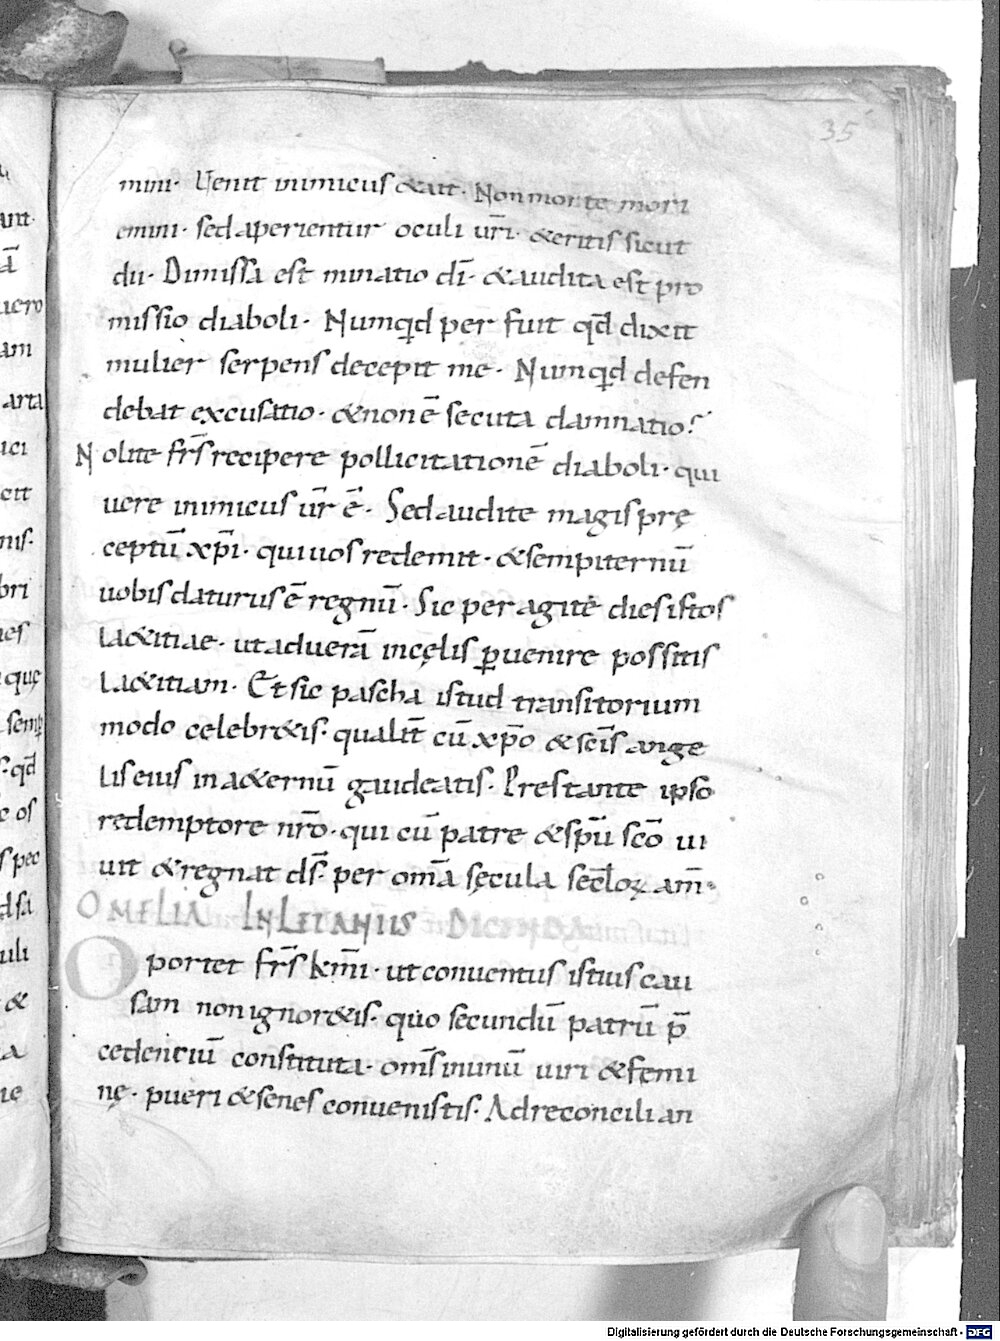 35
mini· Uenit inimicus &ait· Non morte mori
emini· sed aperientur oculi ur̄i· &eritis sicut
dii· Dimissa est minatio dī· &audita est pro
missio diaboli· Numqđ per fuit qđ dixit
mulier serpens decepit me· Numqđ defen
debat excusatio· &non ē secuta damnatio?
Nolite fr̄s recipere pollicitationē diaboli· qui
uere inimicus ur̄ ē· Sed audite magis prę
ceptū xp̄i· qui uos redemit· &sempiternū
uobis daturus ē regnū· Sic peragite dies istos
la&itiae· ut ad uerā in cęlis ꝑuenire possitis
la&itiam· Et sic pascha istud transitorium
modo celebr&is· qualit̄ cū xp̄o & sc̄is ange
lis eius in a&ernū gaudeatis· Prestante ipso
redemptore nr̄o· qui cū patre &sp̄u sc̄o ui
uit &regnat ds̄· per om̄a sęcula sec̄loꝝ am̄·
OMELIA IN LETANIIS DICENDA
Oportet fr̄s km̄i· ut conuentus istius cau
sam non ignor&is· quo secundū patrū p̄
cedentiū constituta· om̄s in unū uiri &femi
nę· pueri &senes conuenistis· Ad reconcilian
Digitalisierung gefördert durch die Deutsche Forschungsgemeinschaft - DFG